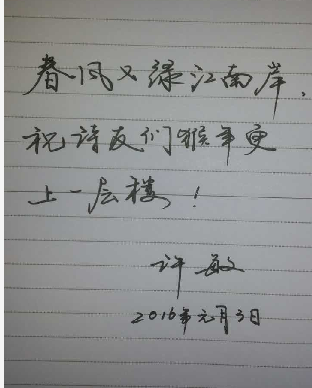 春风又绿江南岸，
祝诗友们猴年更
上一层楼！
许敏
2016年元月3日